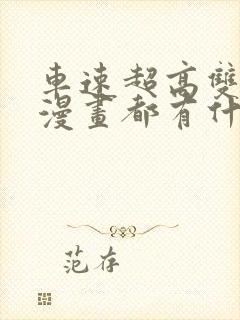 車速超高雙
漫畫都有什
范存